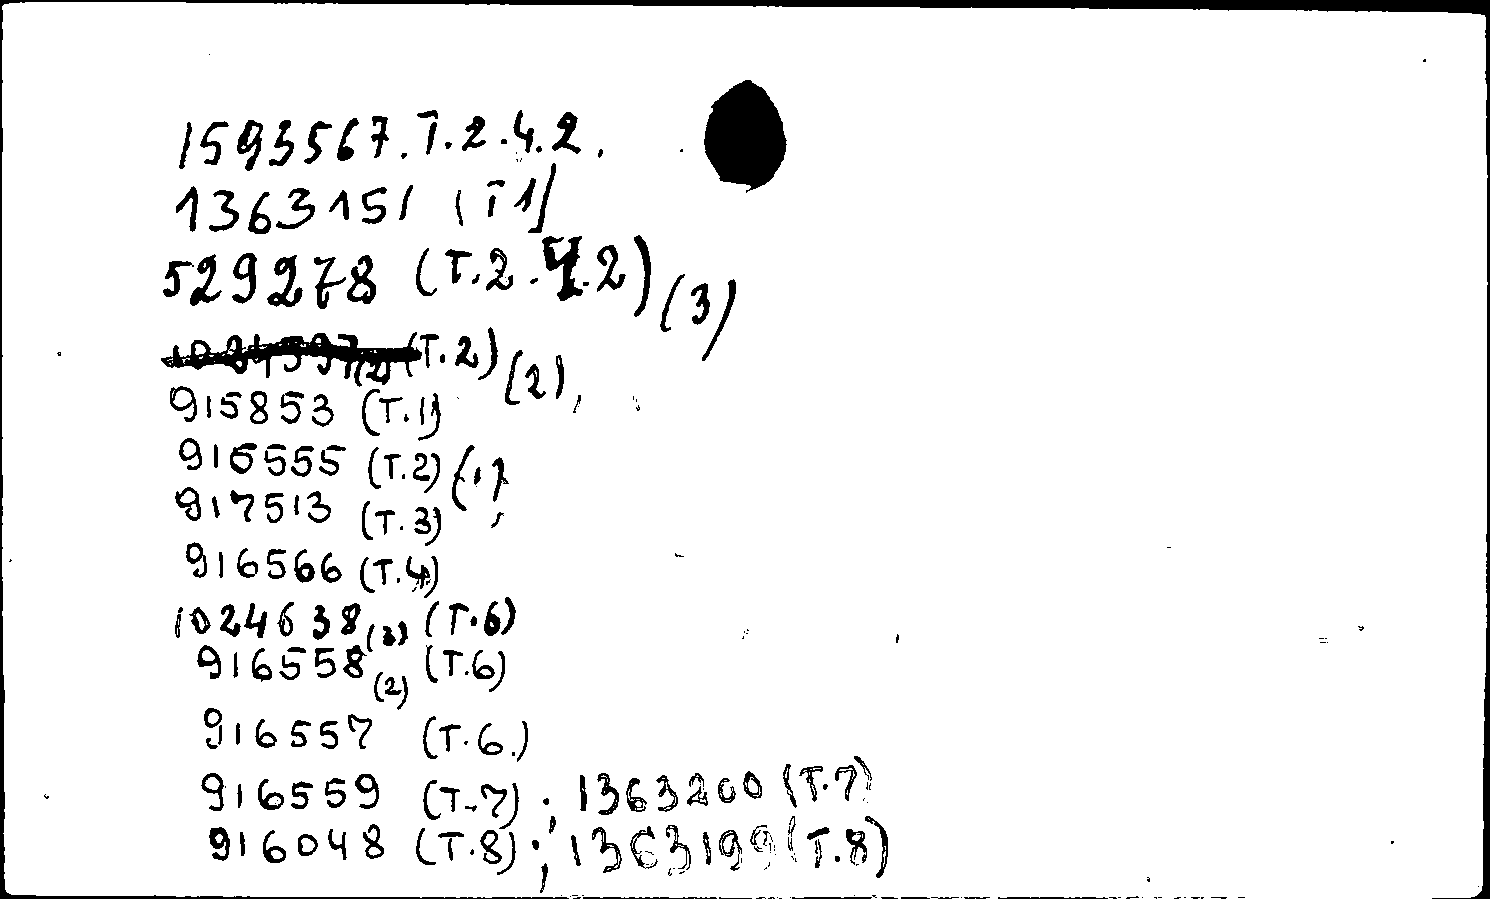 1593567. T.2.4.2.
1363151 (T 1)
529278 (T.2.4.2) (3)
(T.2) (2),
915853 (T.1)
916555 (T.2) (1),
917513 (T.3)
916566 (T.4)
1024638 (3) (T.6)
916558 (2) (T.6)
916557 (T.6.)
916559 (T.7) ; 1363200 (T.7)
916048 (T.8) ; 1363199 (T.8)